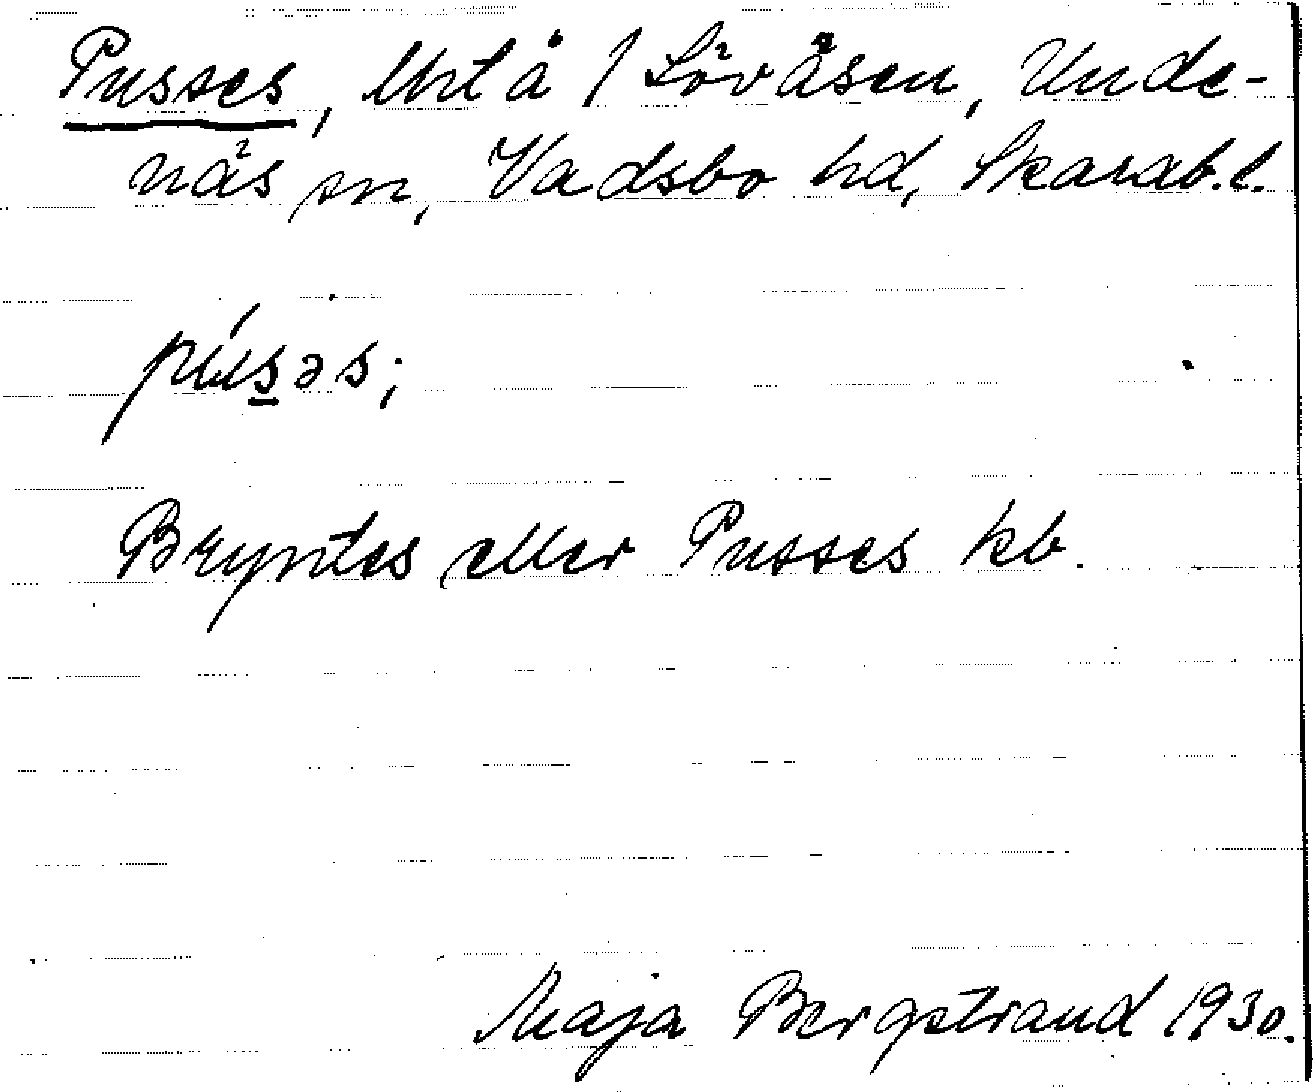 Pusses, Utl å / Lövåsen, Unde-
näs sn, Vadsbo hd, Skarab.l.
pùs̲əs;
Bryntes eller Pusses kb.
Maja Bergstrand 1930.